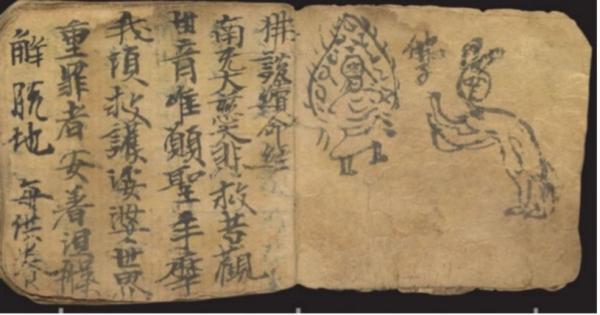 佛子
佛說續命經
南无大慈大悲救苦觀
世音唯願聖手摩
我頂救護娑婆世界
重罪者安着涅槃
解脫地 每供養